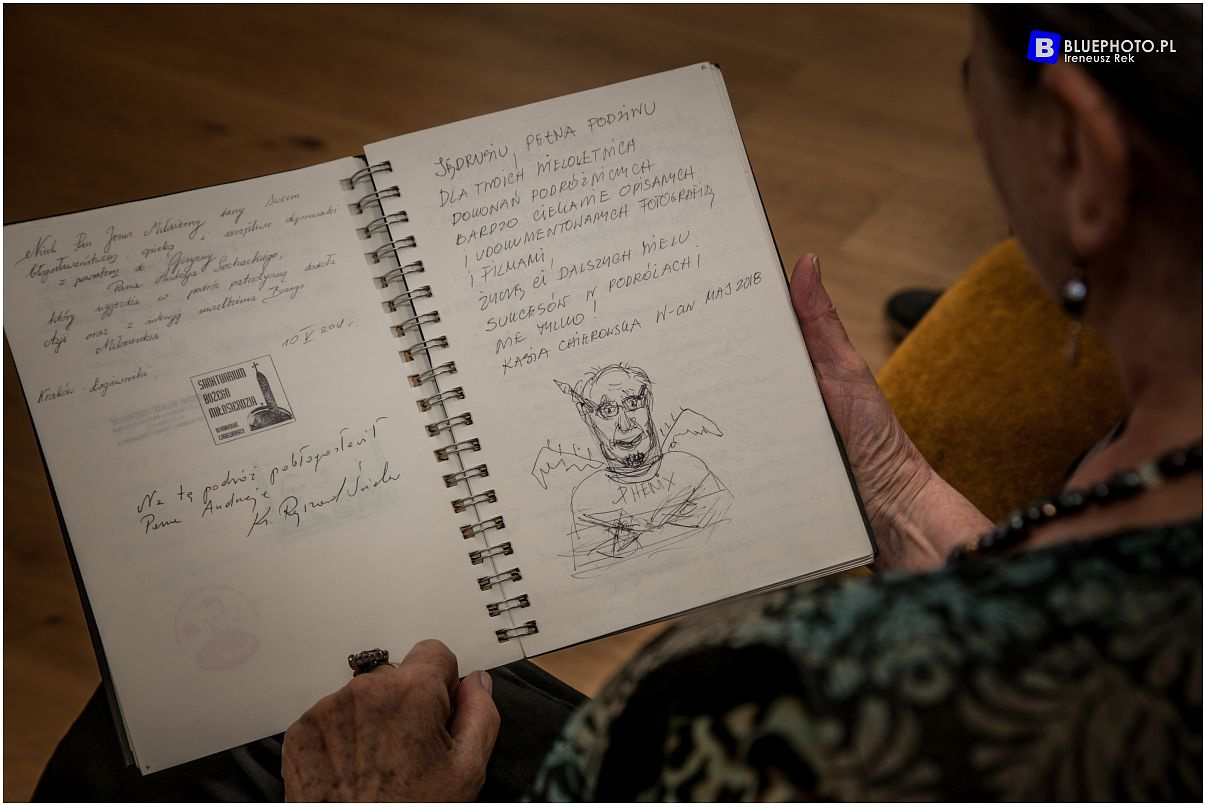 Niech Pan Jezus Miłosierny dany swoim
błogosławieństwem, opieką i szczęśliwie doprowadzi
z powrotem do Ojczyzny
Pana Andrzeja Sochackiego,
który wyjeżdża w podróż patriotyczną dookoła
Azji oraz z intencją uwielbienia Bożego
Miłosierdzia.
10 V 2018 r.
Kraków - Łagiewniki,
SANKTUARIUM
BOŻEGO
MIŁOSIERDZIA
W KRAKOWIE
ŁAGIEWNIKACH
Na tę podróż pobłogosławił
Panu Andrzeje
Ks. Ryszard
JĘDRUSIU, PEŁNA PODZIWU
DLA TWOICH WIELOLETNICH
DOKONAŃ PODRÓŻNICZYCH
BARDZO CIEKAWIE OPISANYCH
I UDOKUMENTOWANYCH FOTOGRAFIĄ
I FILMAMI,
ŻYCZĘ CI DALSZYCH WIELU
SUKCESÓW W PODRÓŻACH I
NIE TYLKO!
KASIA W-AW MAJ 2018
PHENIX
B BLUEPHOTO.PL
Ireneusz Rek